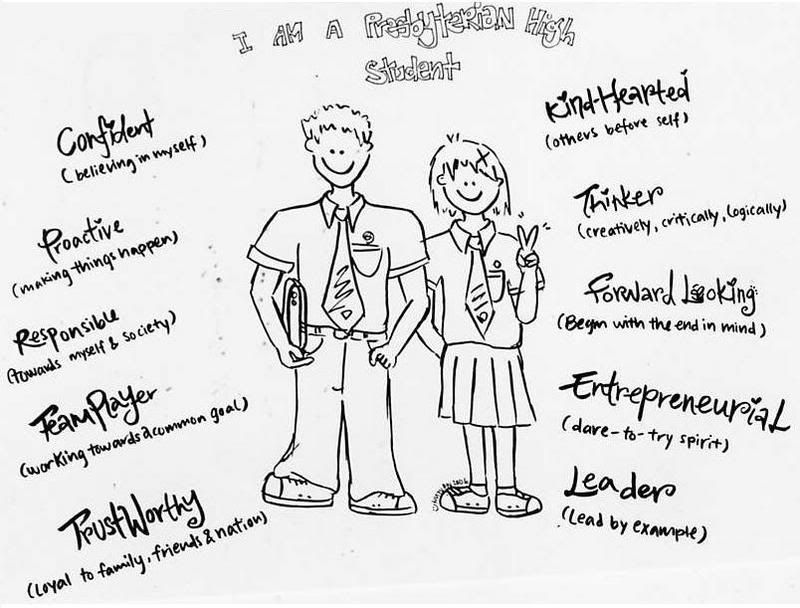 I AM A Presbyterian High
Student
Confident
(believing in myself)
Proactive
(making things happen)
Responsible
(towards myself & society)
Team Player
(working towards a common goal)
TrustWorthy
(Loyal to family, friends & nation)
Kind-Hearted
(others before self)
Thinker
(creatively, critically, logically)
Forward Looking
(Begin with the end in mind)
EntrepreneuriaL
(dare-to-try spirit)
Leader
(Lead by example)